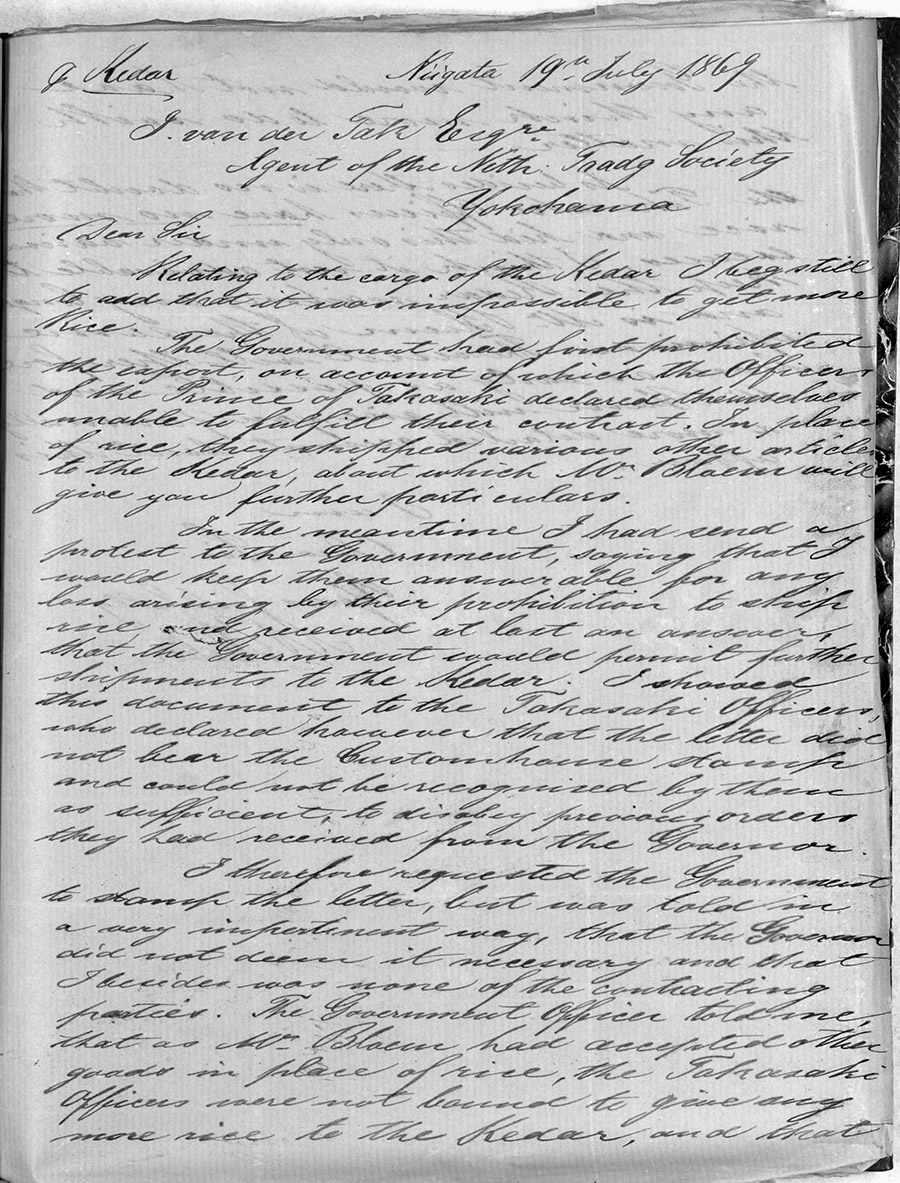 p Kedar
Niigata 19th July 1869
J. van der Tak Esqre
Agent of the Neth. Tradg Society
Yokohama
Dear Sir
Relating to the cargo of the Kedar I beg still
to add that it was impossible to get more
Rice.
The Government had first prohibited
the export, on account of which the Officers
of the Prince of Takasaki declared themselves
unable to fulfill their contract. In place
of rice, they shipped various other articles
to the Kedar, about which Mr. Bloem will
give you further particulars.
In the meantime I had send a
protest to the Government, saying that I
would keep them answerable for any
loss arising by their prohibition to ship
rice and received at last an answer,
that the Government would permit further
shipments to the Kedar. I showed
this document to the Takasaki Officers,
who declared however that the letter did
not bear the Customhouse stamp
and could not be recognised by them
as sufficient, to disobey previous orders
they had received from the Governor.
I therefore requested the Government
to stamp the letter, but was told in
a very impertinent way, that the Governor
did not deem it necessary and that
I besides was none of the contracting
parties. The Government Officer told me,
that as Mr. Bloem had accepted other
goods in place of rice, the Takasaki
Officers were not bound to give any
more rice to the Kedar, and that